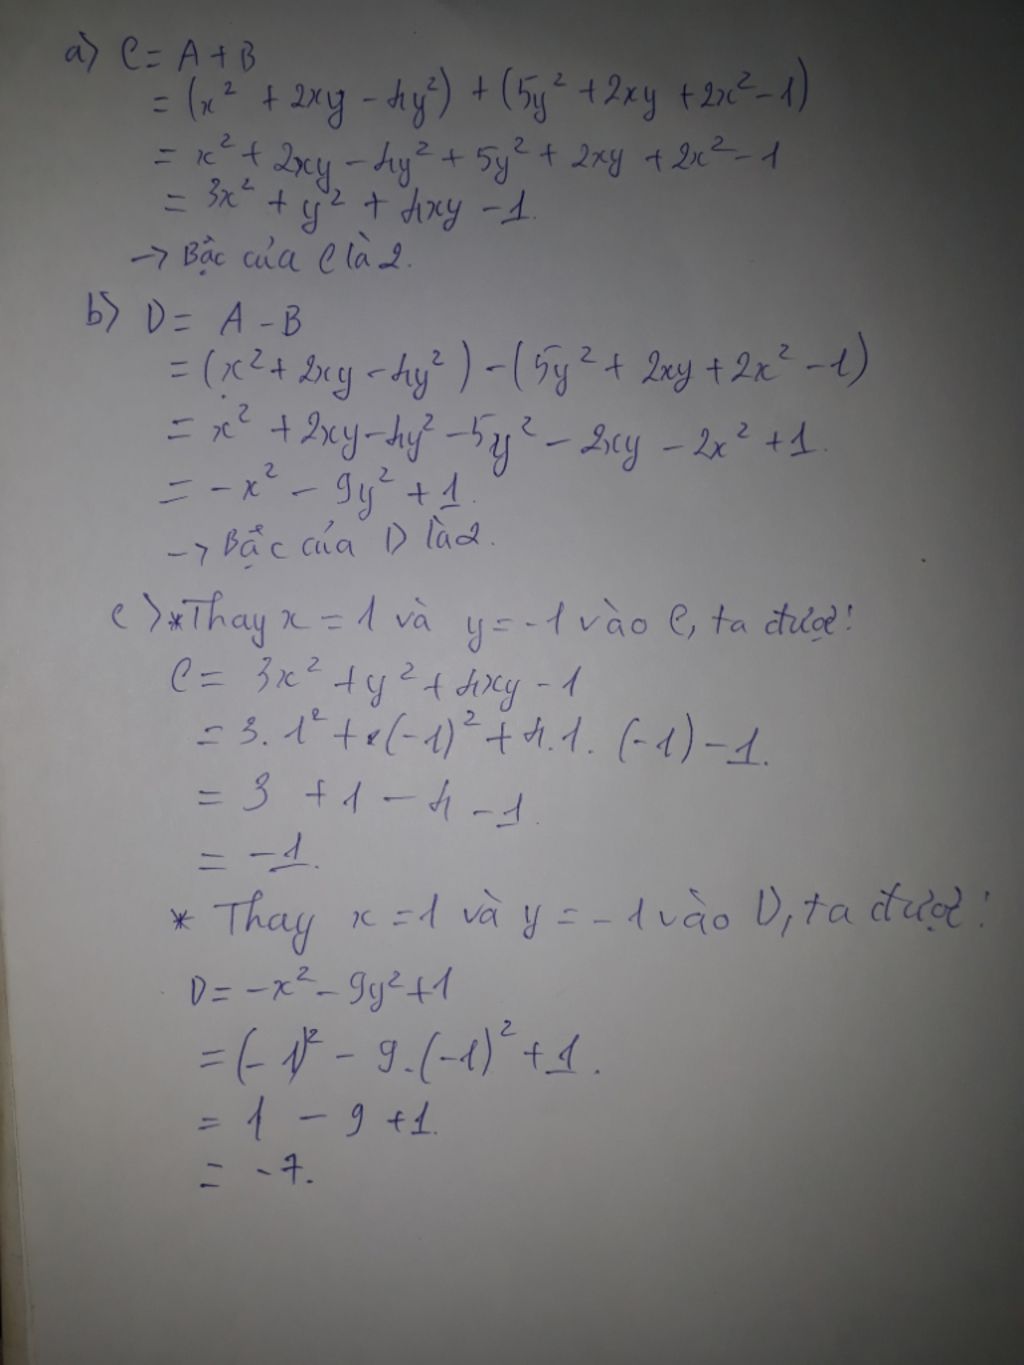 a) C = A + B
= (x² + 2xy - 4y²) + (5y² + 2xy + 2x² - 1)
= x² + 2xy - 4y² + 5y² + 2xy + 2x² - 1
= 3x² + y² + 4xy - 1.
→ Bậc của C là 2.
b) D = A - B
= (x² + 2xy - 4y²) - (5y² + 2xy + 2x² - 1)
= x² + 2xy - 4y² - 5y² - 2xy - 2x² + 1.
= -x² - 9y² + 1.
→ Bậc của D là 2.
c) * Thay x = 1 và y = -1 vào C, ta được:
C = 3x² + y² + 4xy - 1
= 3. 1² + (-1)² + 4.1. (-1) - 1.
= 3 + 1 - 4 - 1.
= -1.
* Thay x = 1 và y = -1 vào D, ta được:
D = -x² - 9y² + 1
= (-1)² - 9.(-1)² + 1.
= 1 - 9 + 1.
= -7.